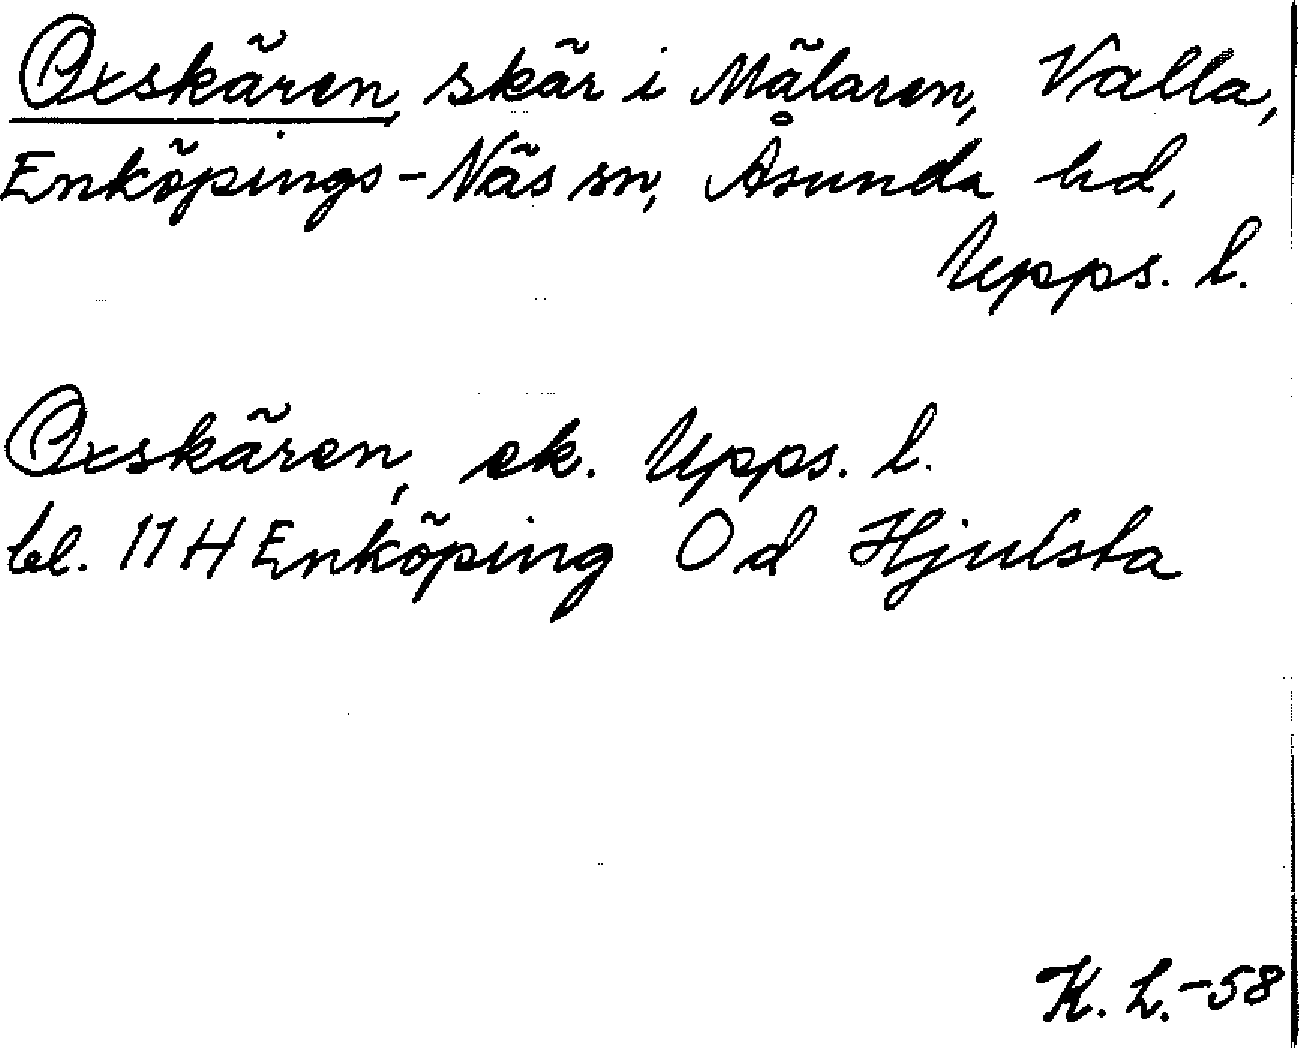 Oxskären, skär i Mälaren, Valla,
Enköpings-Näs sn, Åsunda hd,
Upps. l.
Oxskären, ek. Upps. l.
bl. 11 H Enköping Od Hjulsta
K. L. -58